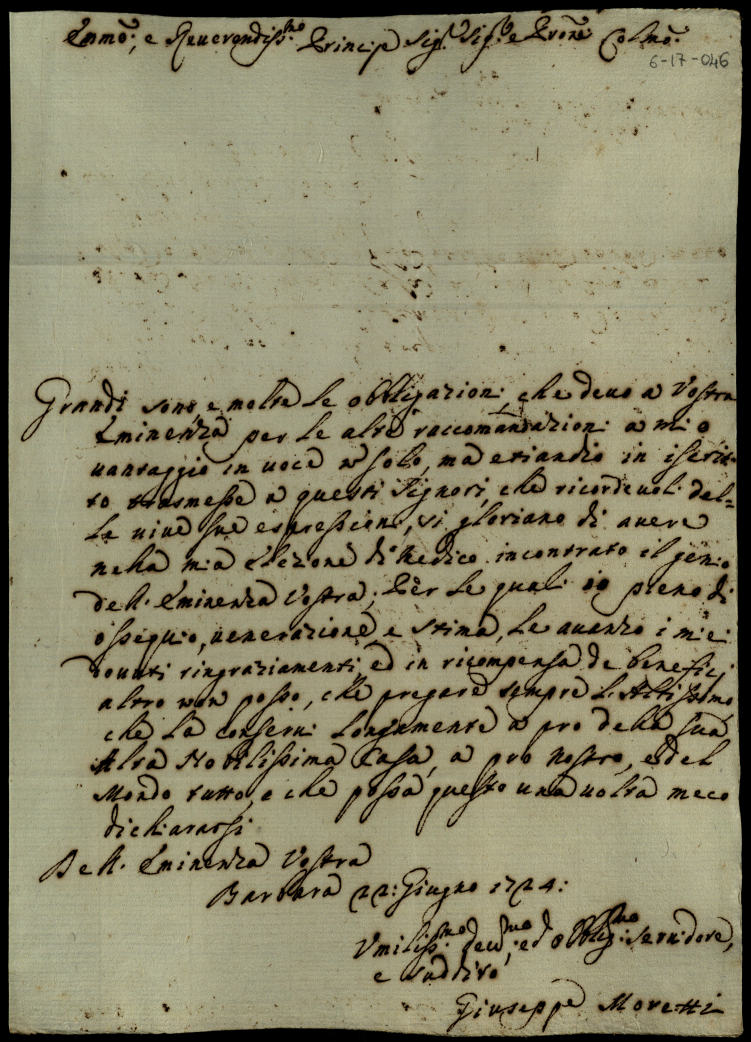 Emmõ, e Reverendiss:mo Principe Sig:r Sig:r e Prone Colmõ:
6-17-046
Grandi sono, e molte le obbligazioni, che devo a Vostra
Eminenza per le alte raccomandazioni a mio
vantaggio in voce non solo, ma etiandio in iscrit-
to trasmesse a questi Signori, che ricordevoli del=
le vive sue espressioni, si gloriano di avere
nella mia Elezione di Medico incontrato il genio
dell' Eminenza Vostra; Per le quali io pieno di
ossequio, venerazione e stima, le avanzo i miei
dovuti ringraziamenti, ed in ricompensa de beneficj
altro non posso, che pregare sempre l'Altissimo,
che la conservi longamente a pro della sua
Alta Nobilissima Casa, a pro nostro, e del
Mondo tutto, e che possa questo una volta meco
dichiararsi
Dell' Eminenza Vostra
Barbara 22: Giugno 1724:
Umiliss:mo dev:mo, ed obblig:mo servidore,
e suddito
Giuseppe Moretti